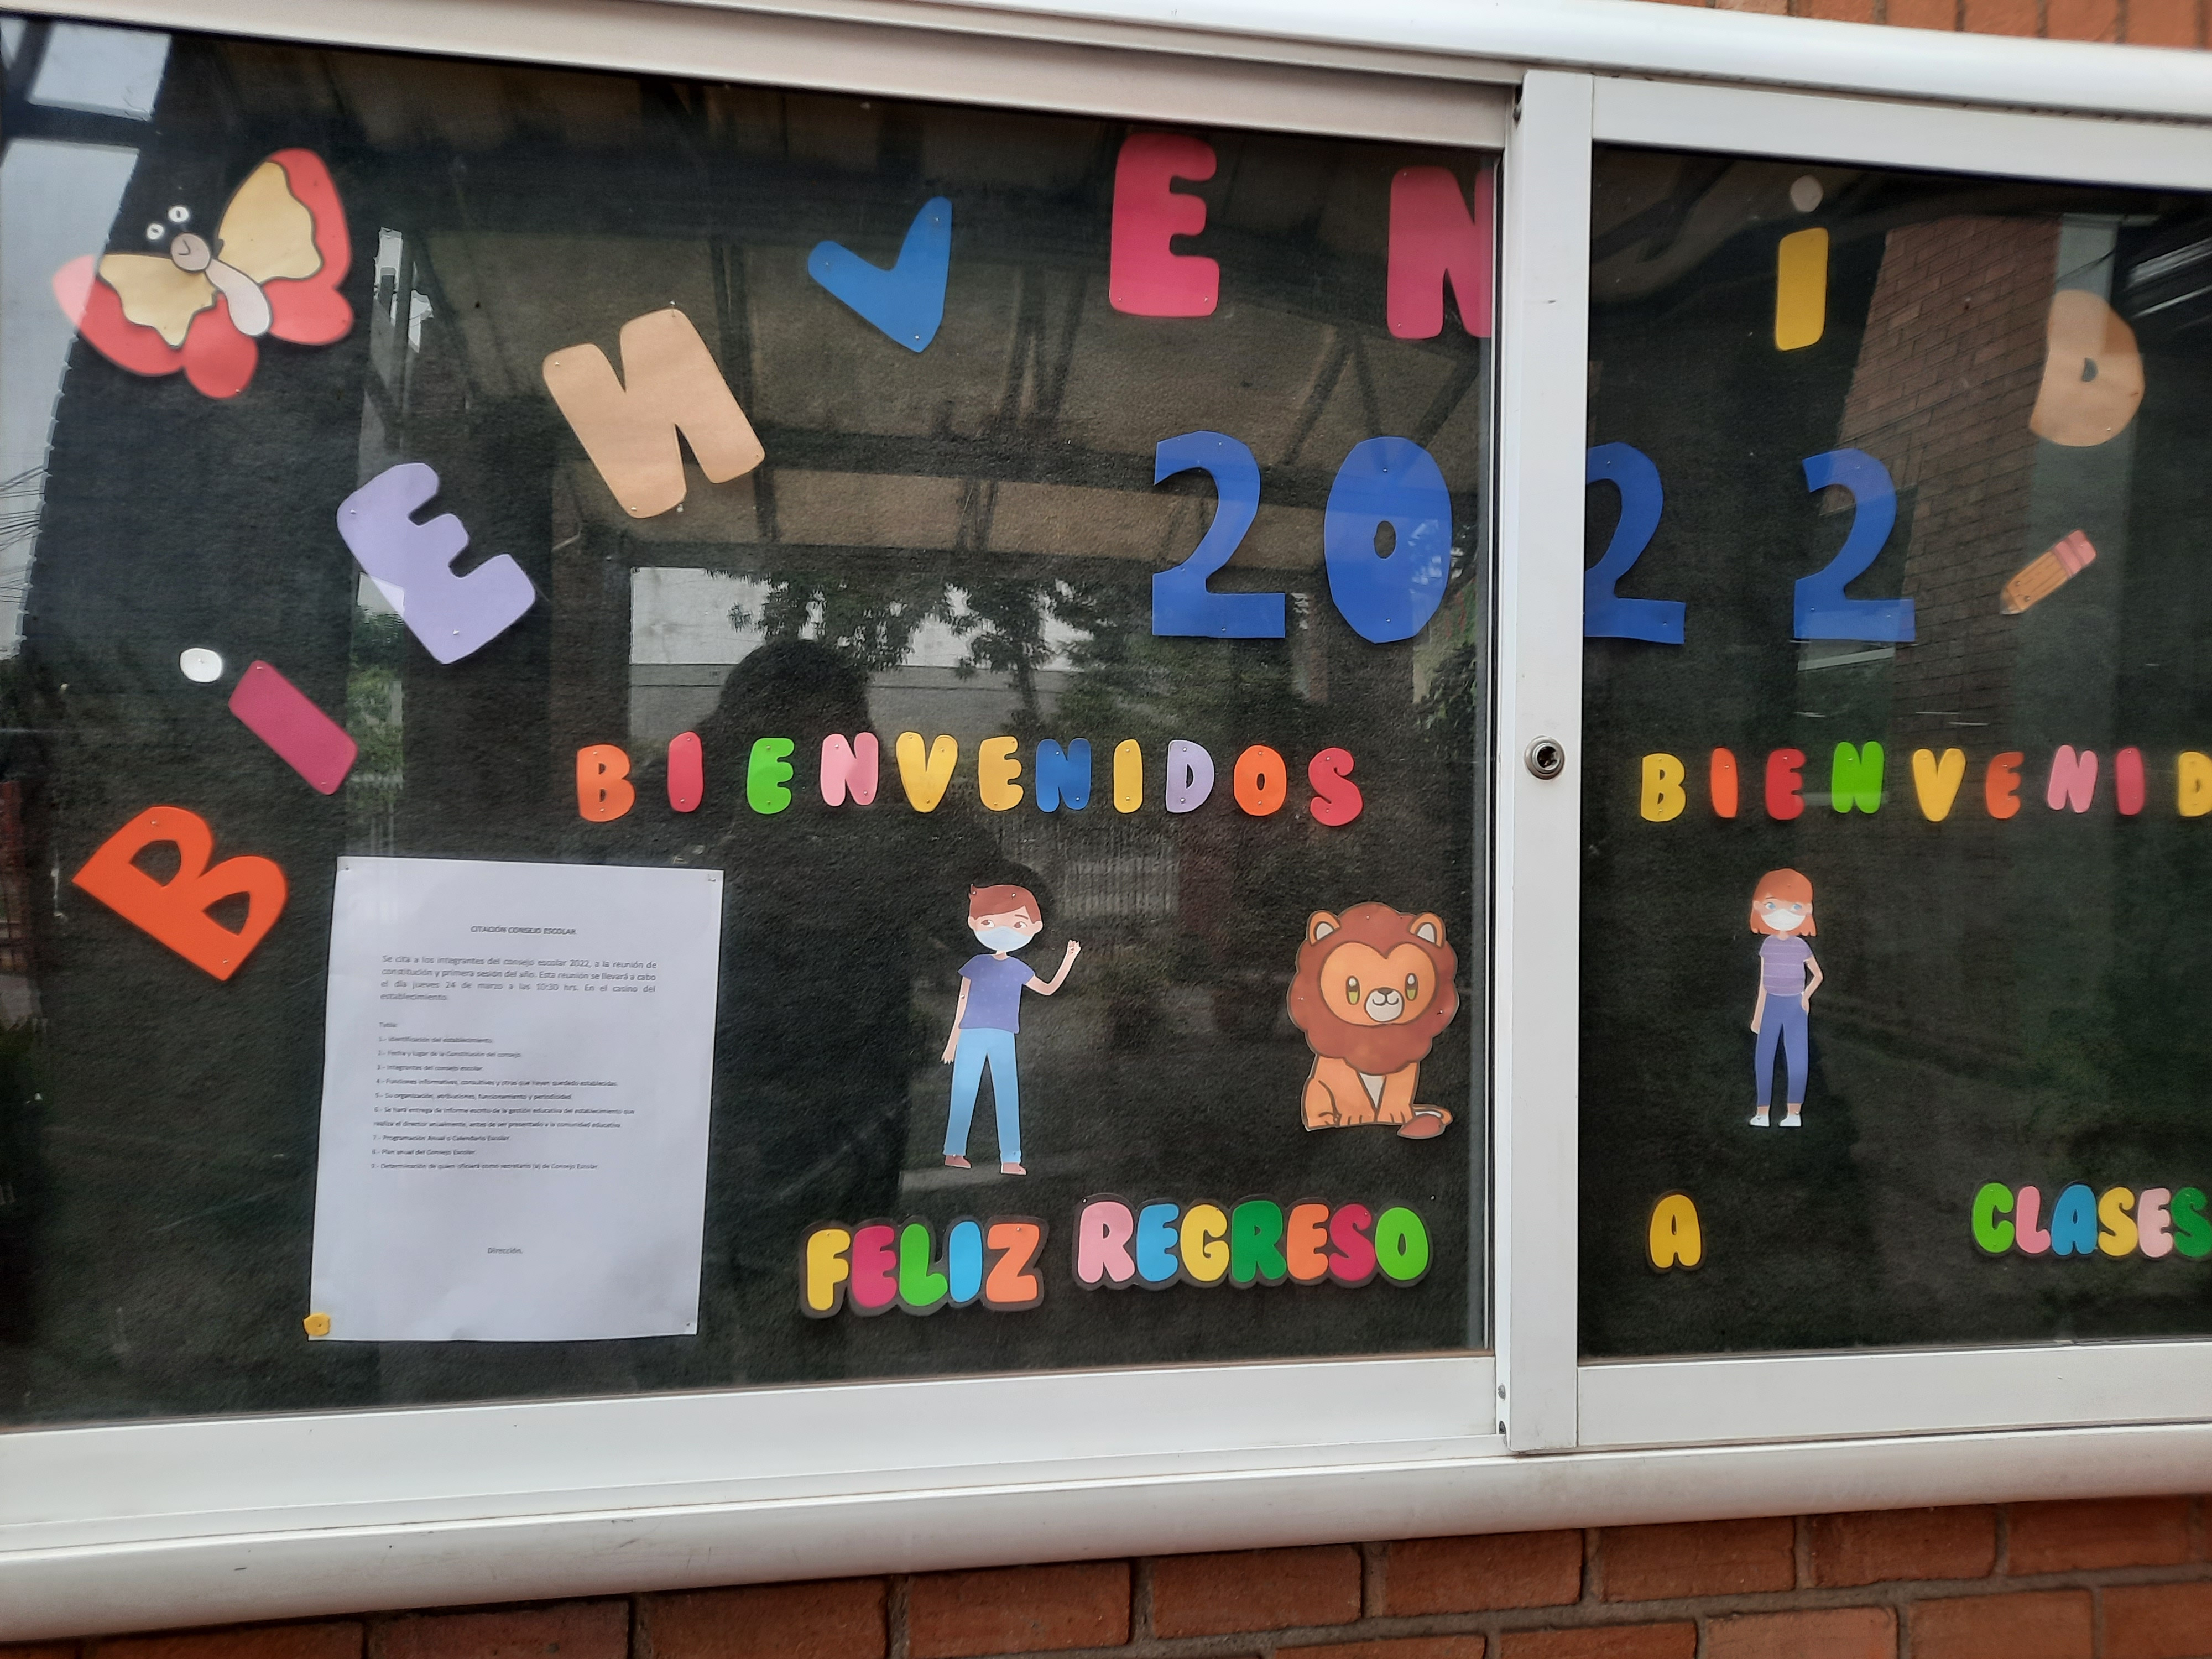 BiENVENiD
2022
BIENVENIDOS
BIENVENID
CITACIÓN CONSEJO ESCOLAR
Se cita a los integrantes del consejo escolar 2022, a la reunión de
constitución y primera sesión del año. Esta reunión se llevará a cabo
el día jueves 24 de marzo a las 10:30 hrs. En el casino del
establecimiento.
Tabla:
1.- Identificación del establecimiento.
2.- Fecha y lugar de la Constitución del consejo
3.- Integrantes del consejo escolar
4.- Funciones informativas, consultivas y otras que hayan quedado establecidas.
5.- Su organización, atribuciones, funcionamiento y periodicidad.
6.- Se hará entrega de informe escrito de la gestión educativa del establecimiento que
realiza el director anualmente, antes de ser presentado a la comunidad educativa.
7.- Programación Anual o Calendario Escolar.
8.- Plan anual del Consejo Escolar
9.- Determinación de quien oficiará como secretario (a) de Consejo Escolar.
Dirección.
FELIZ REGRESO
A CLASES